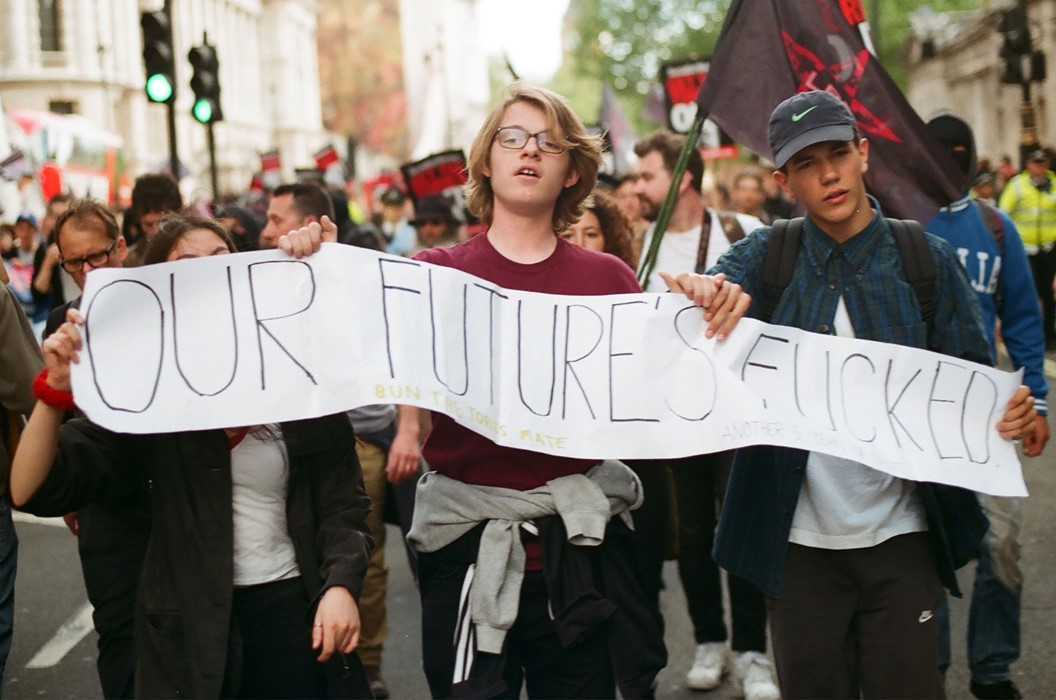 OUR FUTURE'S FUCKED
BUN THE TORIES MATE
ANOTHER 5 YEARS